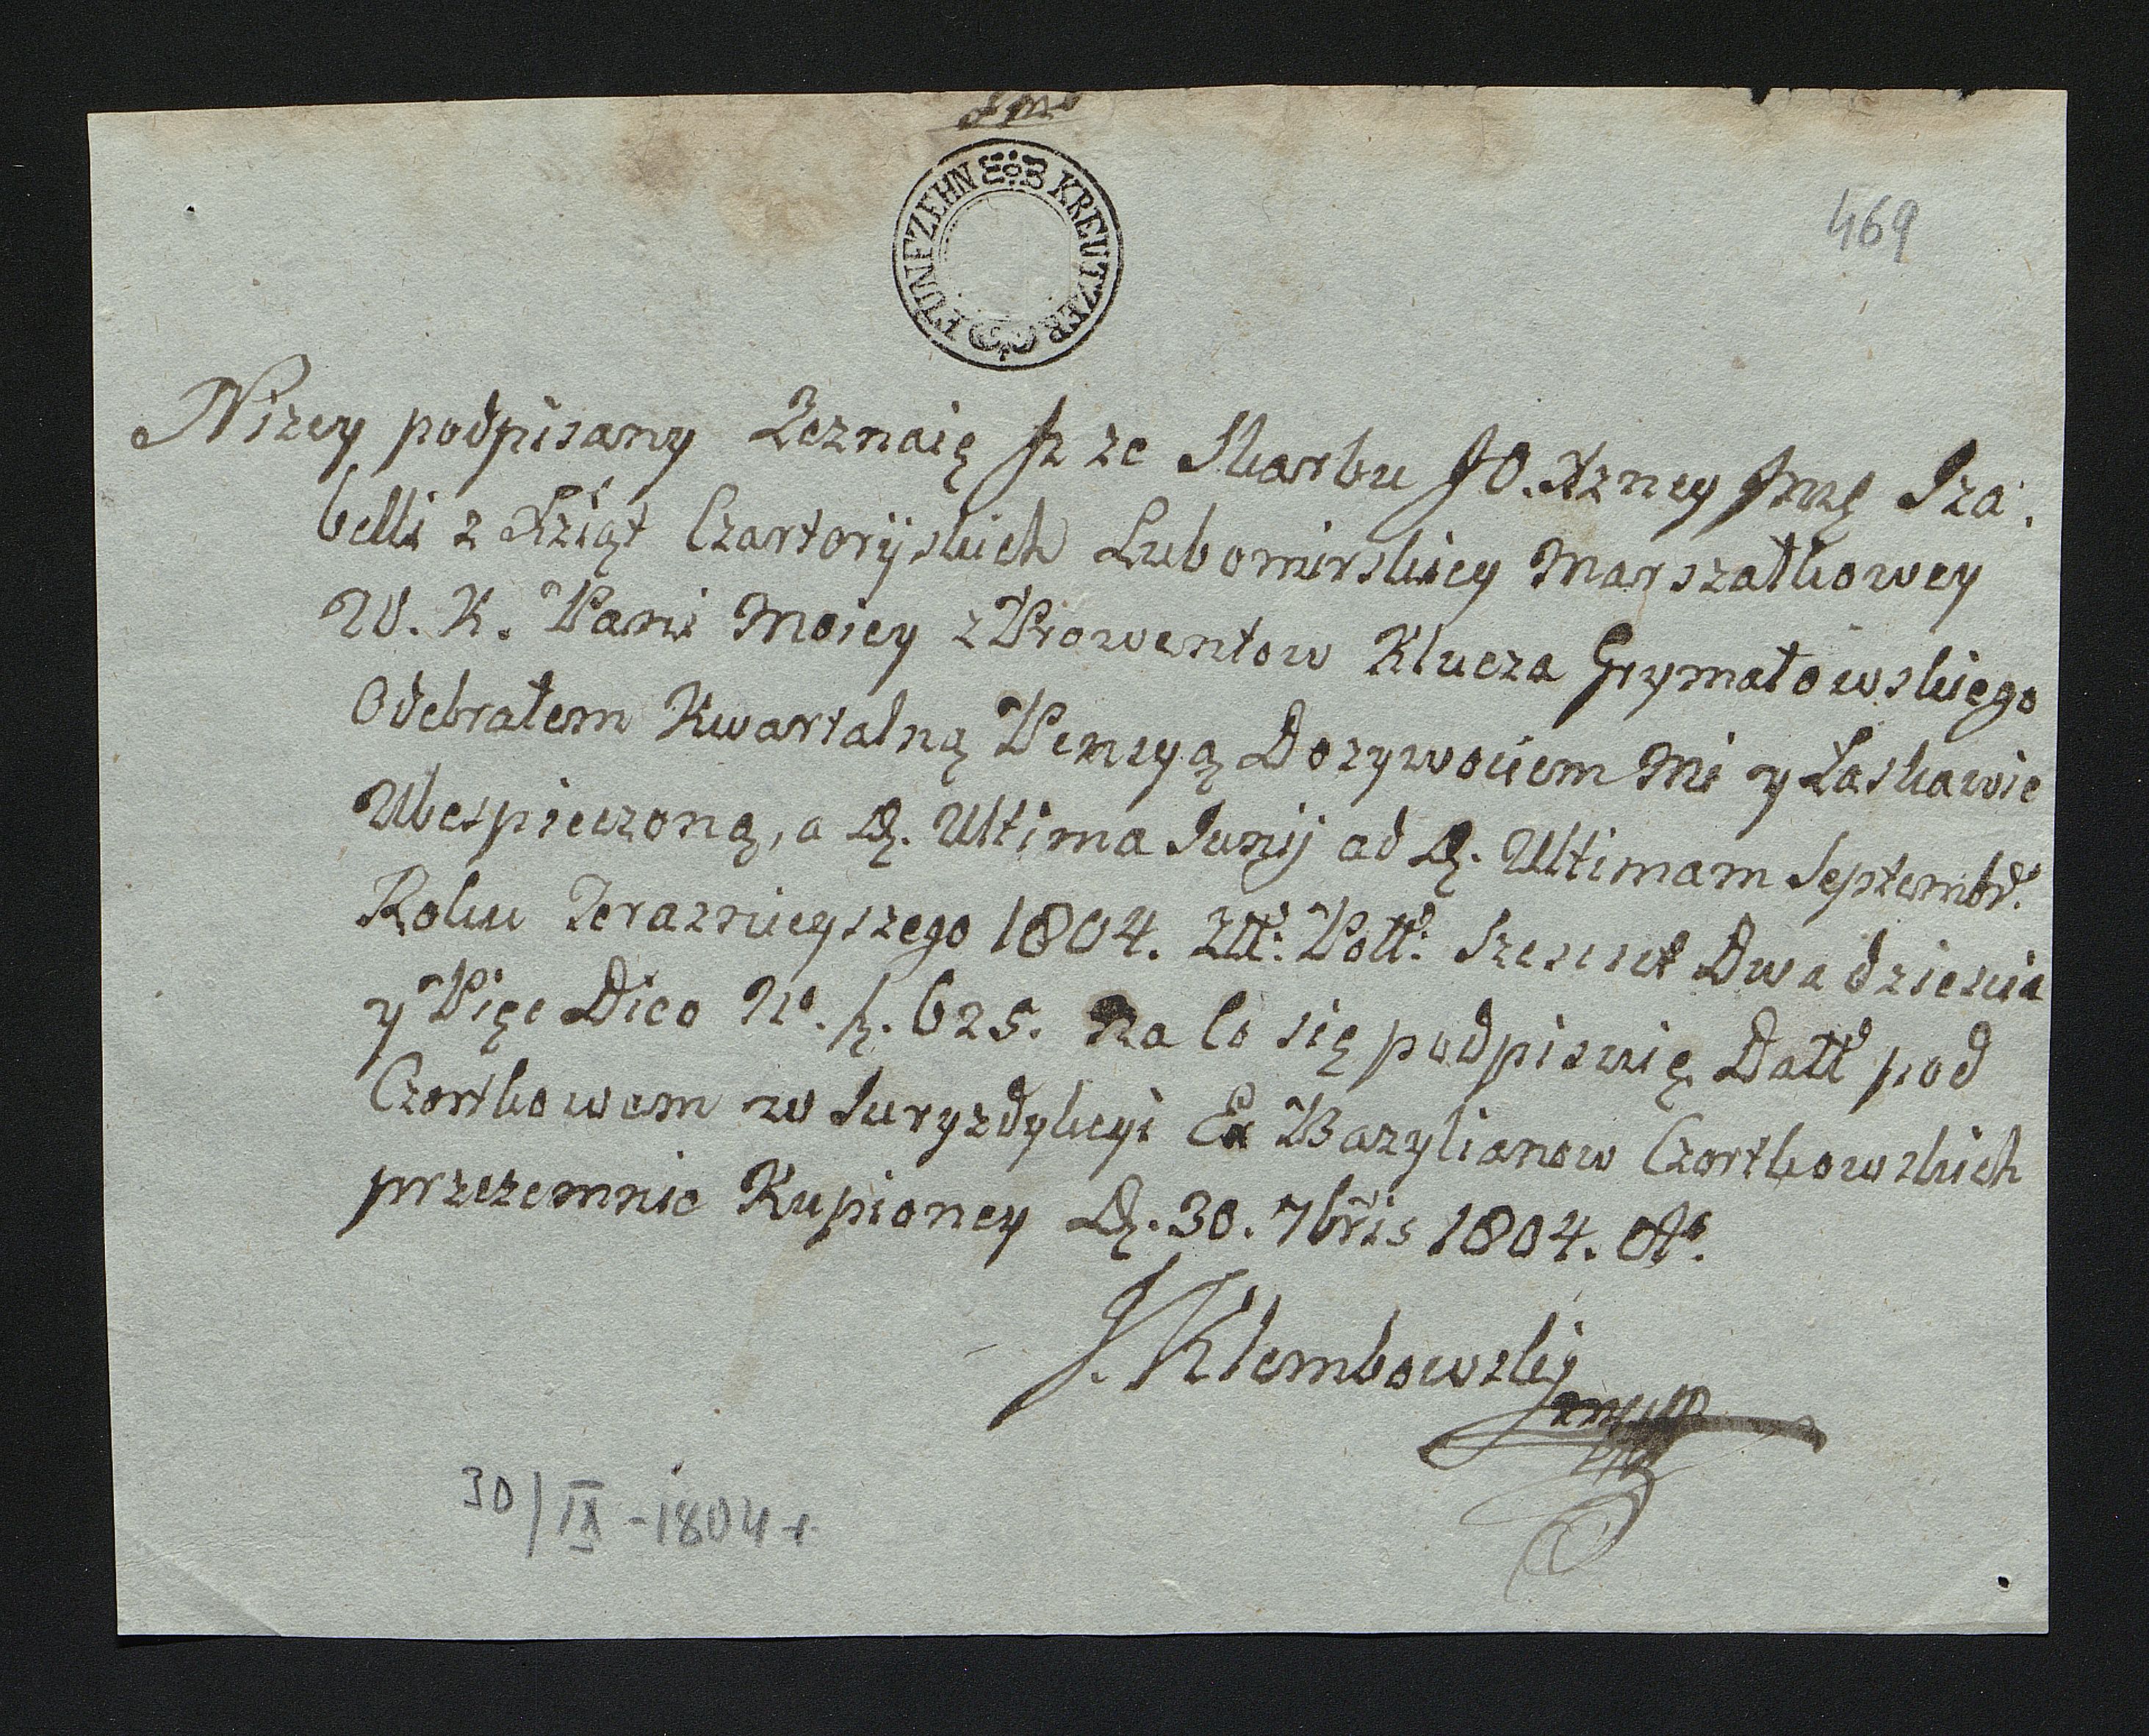 FÜNFZEHN KREUTZER
469
Nizey podpisany Zeznaię Iz ze Skarbu JO. Xzney Jmę Iza.
belli z Xziąt Czartoryskich Lubomirskiey Marszałkowey
W. K. Pani Moiey z Prowentow Klucza Grymałowskiego
Odebrałem Kwartalną Pensyą Dozywociem Mi y Łaskawie
Ubespieczoną, a D. Ultima Junij ad D. Ultimam Septembr.
Roku Teraznieyszego 1804. Złł. Poll. Szescset Dwadziescia
y Pięc Dico No. f. 625. Na Co się podpisuię Datt pod
Czortkowem w Juryzdykcyi Ex Bazylianow Czortkowskich
przezemnie Kupioney D. 30. 7bris 1804. Ao.
J. Klembowskj
30/IX - 1804 r.